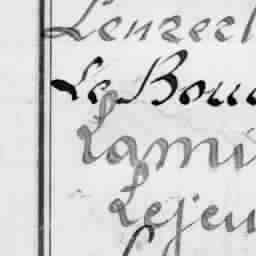 Le Bou
Lami
Lejeu